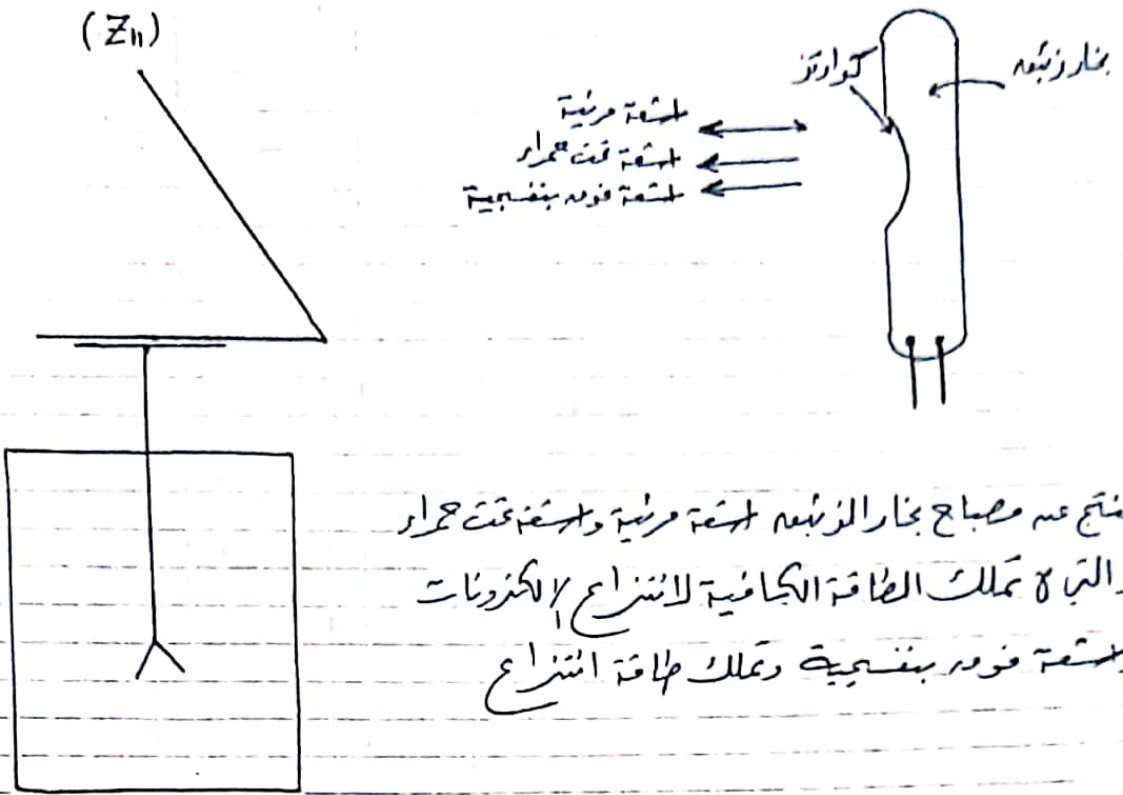 (Zn)
بخار زئبق
كوارتز
اشعة مرئية
اشعة تحت حمراء
اشعة فوق بنفسجية
ينتج عن مصباح بخار الزئبق اشعة مرئية واشعة تحت حمراء
والتي لا تملك الطاقة الكافية لانتزاع الإلكترونات
واشعة فوق بنفسجية وتملك طاقة انتزاع